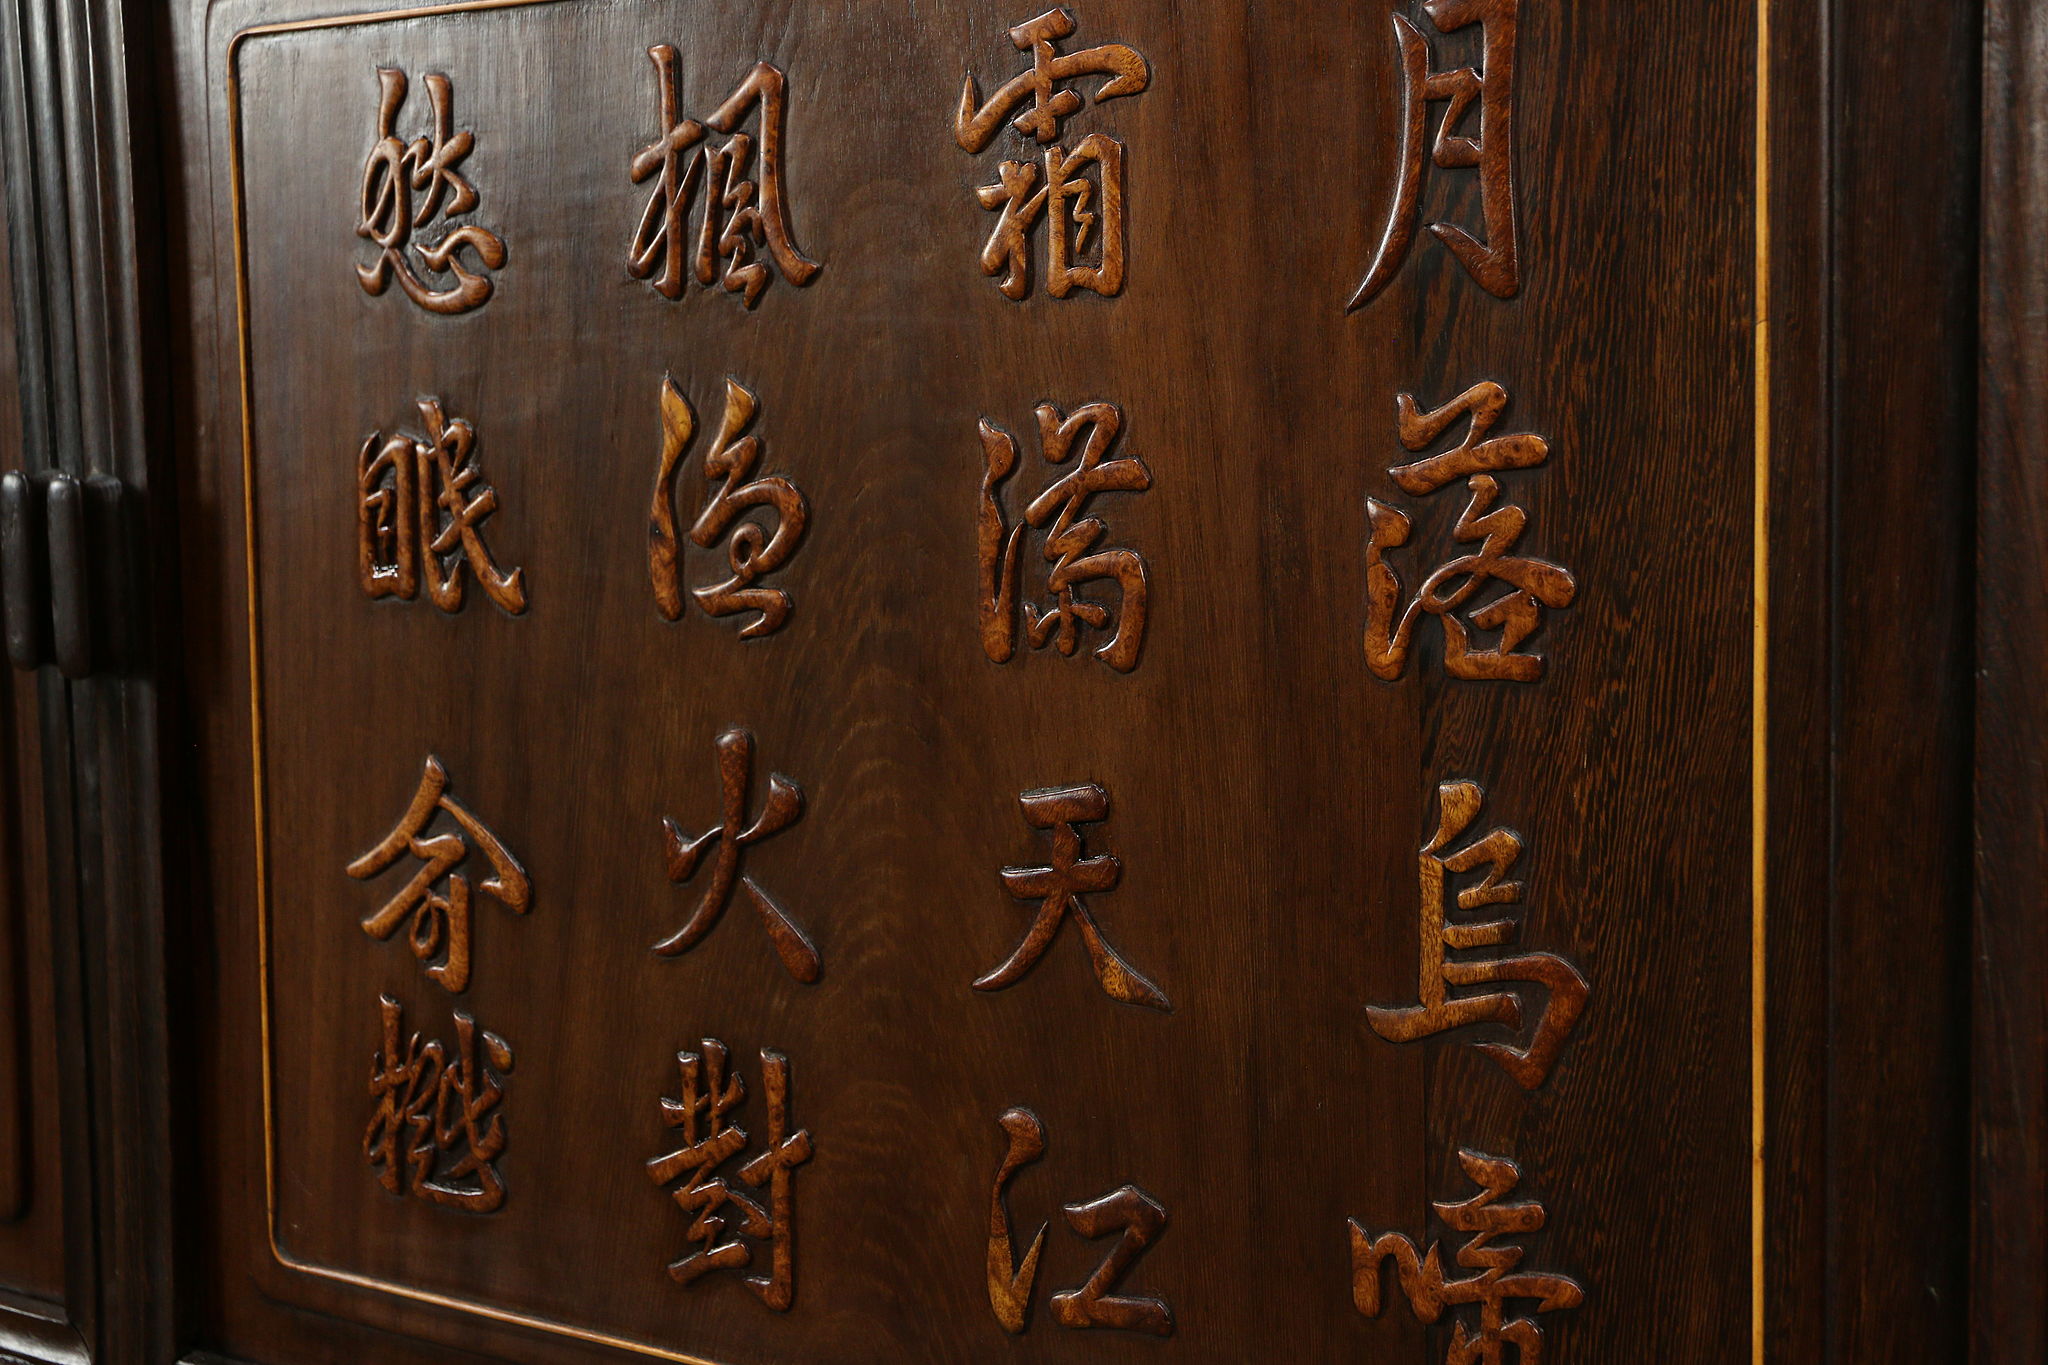 月落烏啼
霜滿天江
楓漁火對
愁眠俞樾